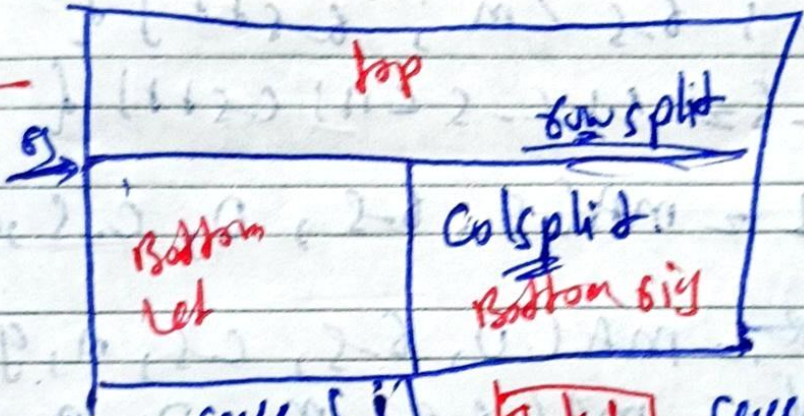 top
row split
Bottom
Colsplit
Let
Bottom rig